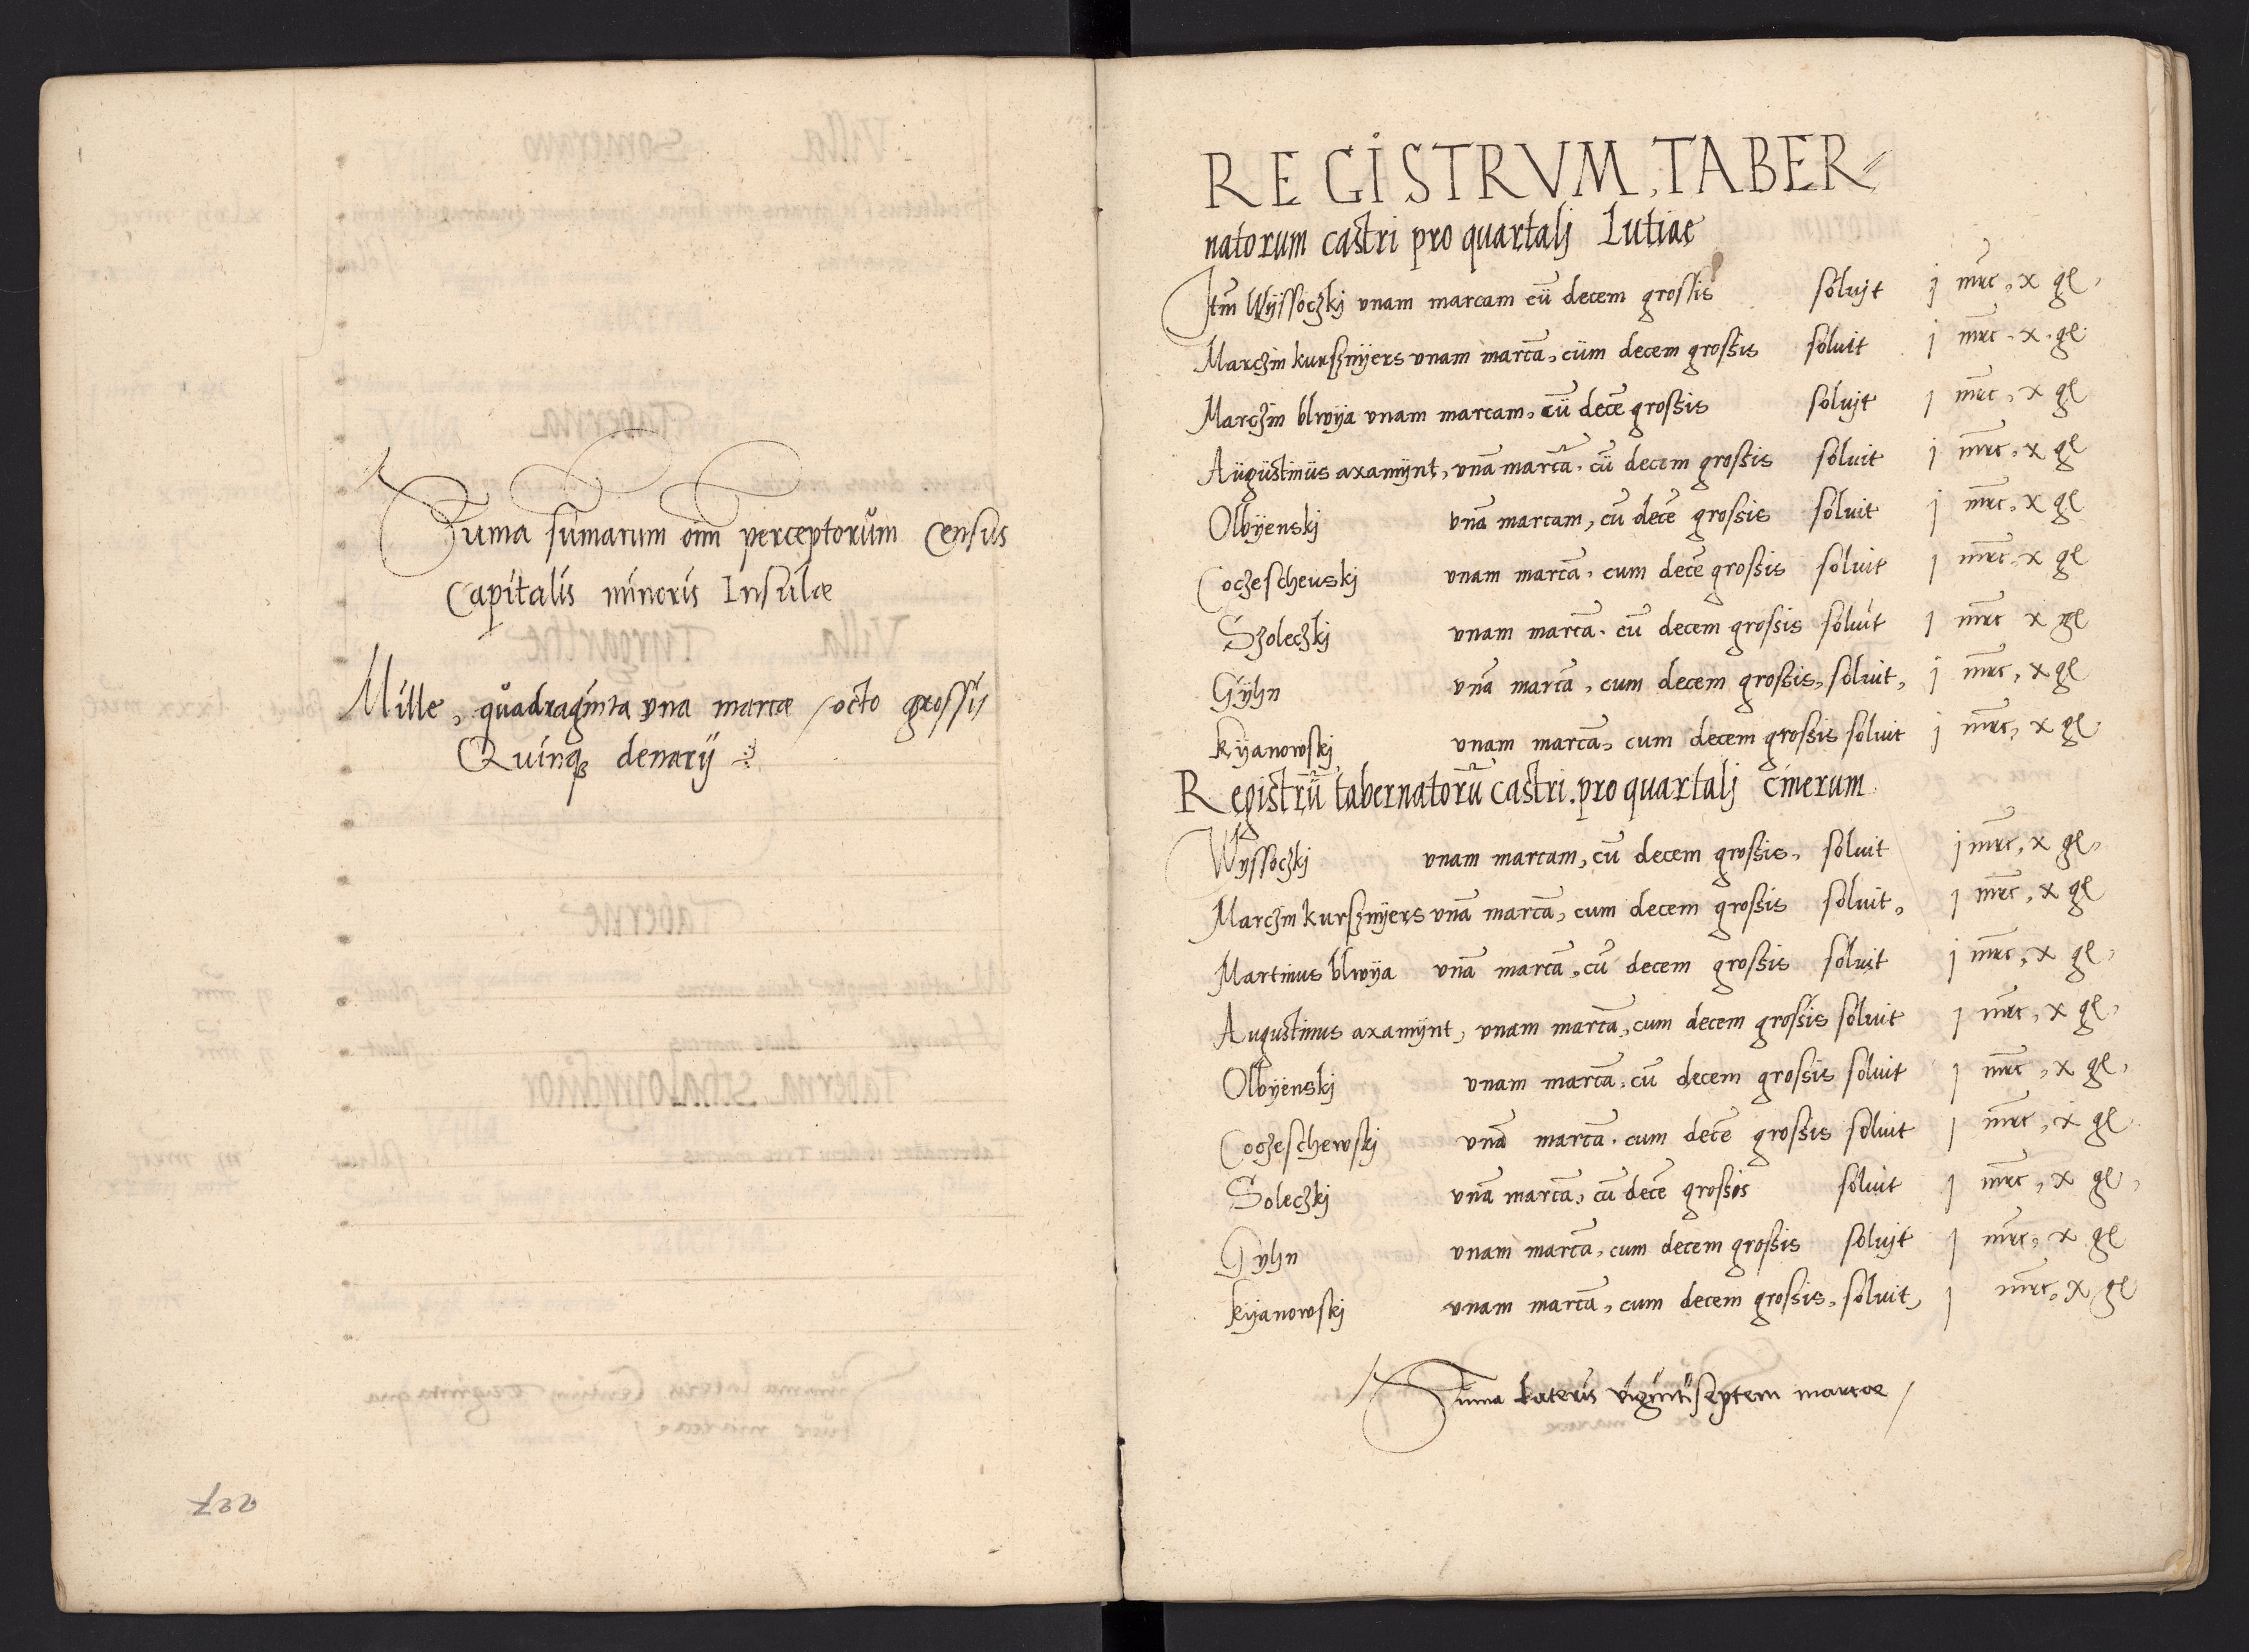 Suma sumarum oīm perceptorum Census
Capitalis minoris Insulæ
Mille, quadraginta una marcæ / octo grossij
Quinqȝ denarij
REGISTRVM, TABER⸗
natorum castri pro quartalj Lutiae
Itm̄ Wÿssoczkj vnam marcam cū decem grossis solujt j mrc, x gl
Marczin kurssnÿers vnam marcā, cum decem grossis soluit j mrc. x. gl
Marczin blwÿa vnam marcam, cū decē grossis solujt j mrc, x gl
Augustinus axamÿnt, vnā marcā, cū decem grossis soluit j mrc, x gl
Olbÿenskj vnā marcam, cū decē grossis soluit j mrc, x gl
Coczescheuskj vnam marcā, cum decē grossis soluit j mrc, x gl
Szoleczkj vnam marcā, cū decem grossis soluit j mrc x gl
Gÿhn vnā marcā, cum decem grossis, soluit, j mrc, x gl
kÿanowskj vnam marcā, cum decem grossis soluit j mrc, x gl
Registrū tabernatorū castri. pro quartalj cinerum
Wyssoczkj vnam marcam, cū decem grossis, soluit j mrc, x gl,
Marczin kurssnÿers vnā marcā, cum decem grossis soluit, j mrc, x gl
Martinus blwÿa vnā marcā, cū decem grossis soluit j mrc, x gl,
Augustinus axamÿnt, vnam marcā, cum decem grossis soluit j mrc, x gl,
Olbÿenskj vnam marcā, cū decem grossis soluit j mrc, x gl,
Coczeschewskj vnā marcā, cum decē grossis soluit j mrc, x gl
Soleczkj vnā marcā, cū decē grossos soluit j mrc, x gl,
Gyhn vnam marcā, cum decem grossis solujt j mrc, x gl
kÿanowskj vnam marcā, cum decem grossis, soluit, j mrc, x gl
Suma Lateris vigintiseptem marcæ /